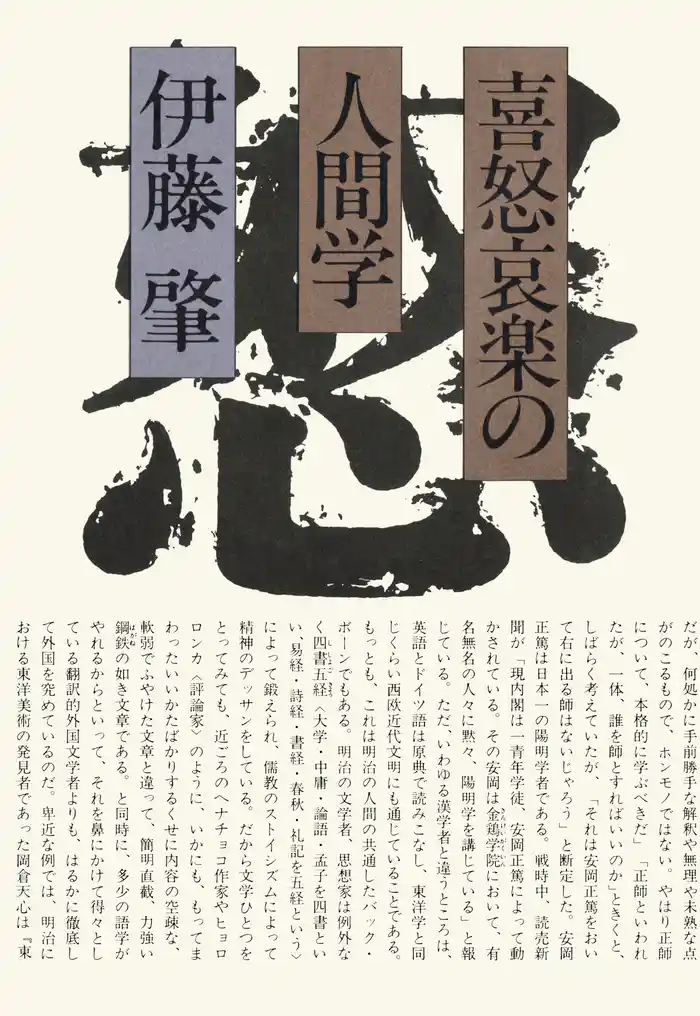 喜怒哀楽の
人間学
伊藤 肇
怒
だが、何処かに手前勝手な解釈や無理や未熟な点
がのこるもので、ホンモノではない。やはり正師
について、本格的に学ぶべきだ」「正師といわれ
たが、一体、誰を師とすればいいのか」ときくと、
しばらく考えていたが、「それは安岡正篤をおい
て右に出る師はないじゃろう」と断定した。安岡
正篤は日本一の陽明学者である。戦時中、読売新
聞が「現内閣は一青年学徒、安岡正篤によって動
かされている。その安岡は金鶏学院において、有
名無名の人々に黙々、陽明学を講じている」と報
じている。ただ、いわゆる漢学者と違うところは、
英語とドイツ語は原典で読みこなし、東洋学と同
じくらい西欧近代文明にも通じていることである。
もっとも、これは明治の人間の共通したバック・
ボーンでもある。明治の文学者、思想家は例外な
く四書五経〈大学・中庸・論語・孟子を四書とい
い、易経・詩経・書経・春秋・礼記を五経という〉
によって鍛えられ、儒教のストイシズムによって
精神のデッサンをしている。だから文学ひとつを
とってみても、近ごろのヘナチョコ作家やヒョロ
ロンカ〈評論家〉のように、いかにも、もってま
わったいいかたばかりするくせに内容の空疎な、
軟弱でふやけた文章と違って、簡明直截、力強い
鋼鉄の如き文章である。と同時に、多少の語学が
やれるからといって、それを鼻にかけて得々とし
ている翻訳的外国文学者よりも、はるかに徹底し
て外国を究めているのだ。卑近な例では、明治に
おける東洋美術の発見者であった岡倉天心は『東